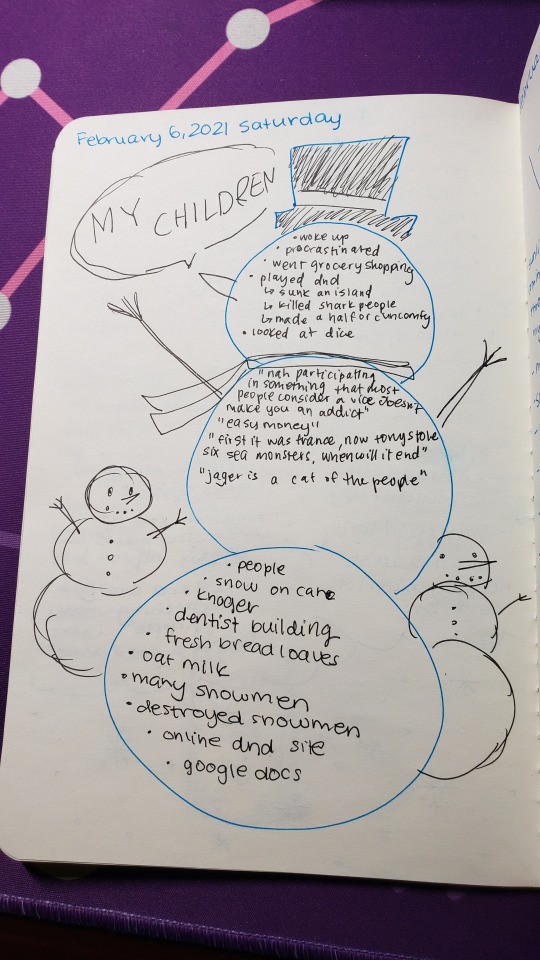 February 6, 2021 Saturday
MY CHILDREN
• woke up
• procrastinated
• went grocery shopping
• played dnd
↳ sunk an island
↳ killed shark people
↳ made a half orc uncomfy
• looked at dice
"nah participating
in something that most
people consider a vice doesn't
make you an addict"
"easy money"
"first it was france, now tony stole
six sea monsters, when will it end"
"jager is a cat of the people"
• people
• snow on care
• kroger
• dentist building
• fresh bread loaves
• oat milk
• many snowmen
• destroyed snowmen
• online dnd site
• google docs